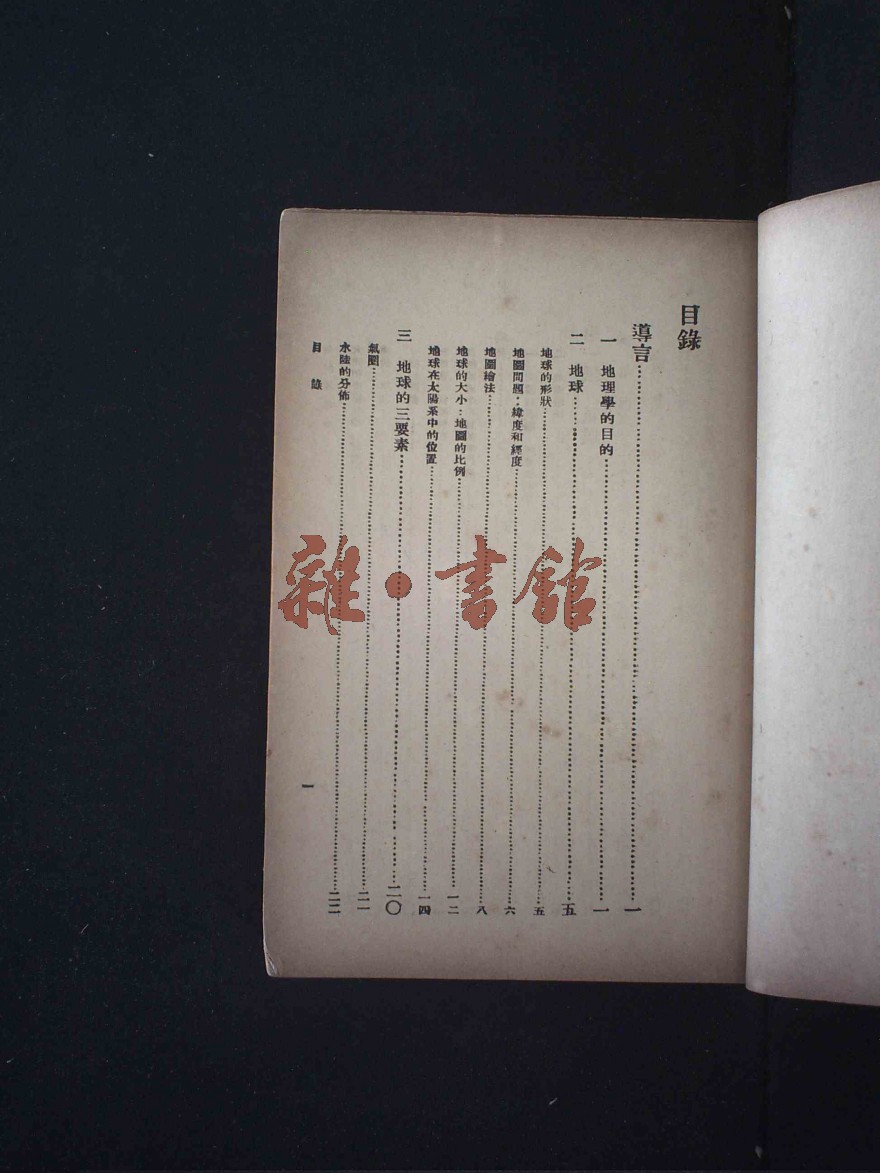 目錄
導言……一
一 地理學的目的……一
二 地球……五
地球的形狀……五
地圖問題：緯度和經度……六
地圖繪法……八
地球的大小：地圖的比例……一二
地球在太陽系中的位置……一四
三 地球的三要素……二〇
氣圈……二一
水陸的分佈……二二
目錄
一
雜·書館